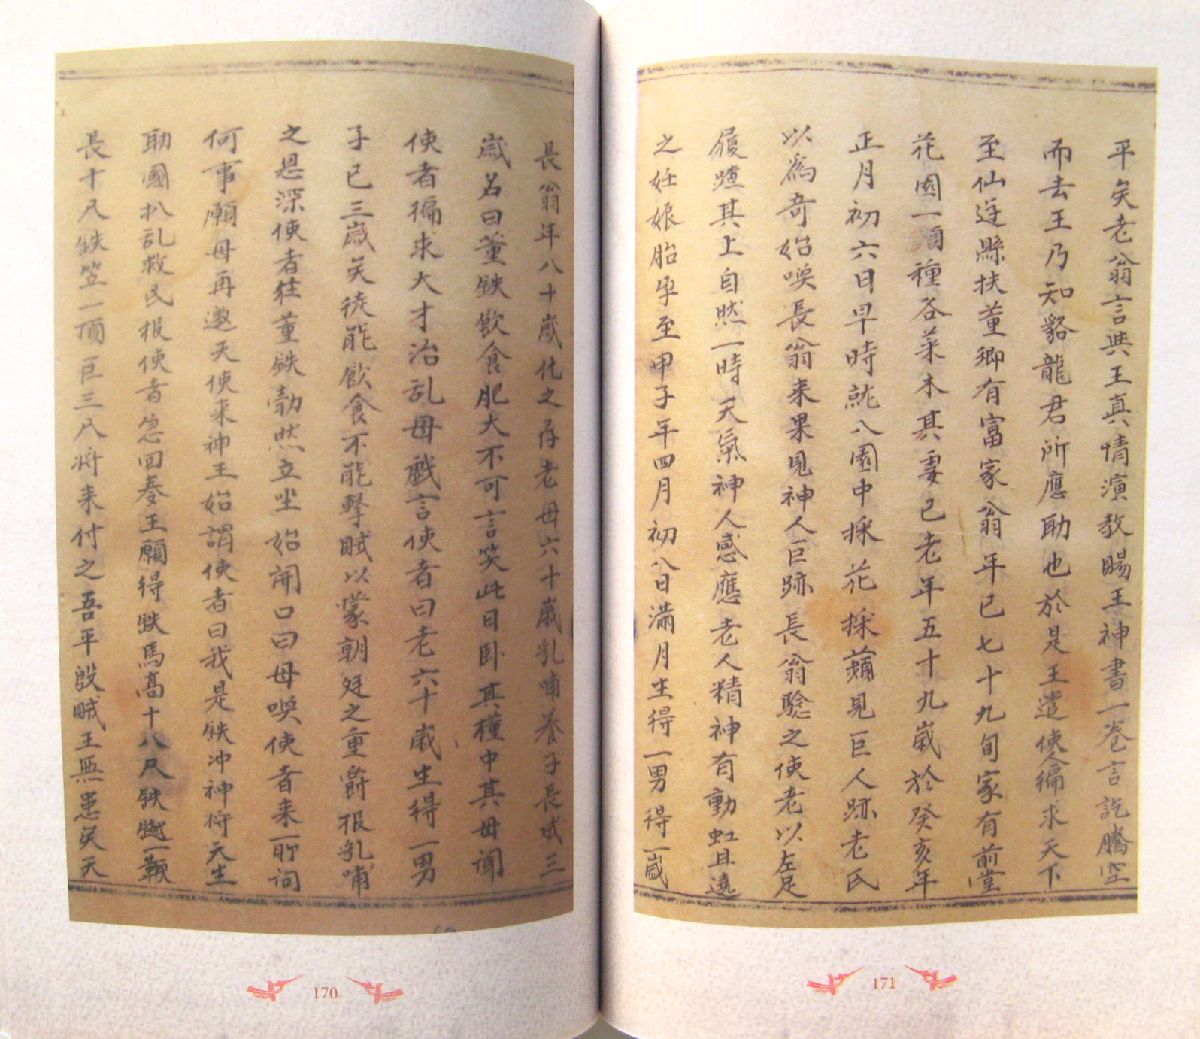 平矣老翁言與王真情演教賜王神書一卷言訖騰空
而去王乃知貉龍君所應助也於是王遣使徧求天下
至仙遊縣扶董鄉有富家翁年已七十九旬家有前堂
花園一頃種各菜木其妻已老年五十九歲於癸亥年
正月初六日早時就入園中採花採蘋見巨人跡老氏
以為奇始喚長翁来果見神人巨跡長翁驗之使老以左足
履蹠其上自然一時天氣神人感應老人精神有動虹且遶
之妊娠胎孕至甲子年四月初八日滿月生得一男得一歲
長翁年八十歲化之存老母六十歲乳哺養子長成三
歲名曰董鉄飲食肥大不可言笑此日卧其種中其母闻
使者徧求大才治乱母戲言使者曰老六十歲生得一男
子已三歲矣徒能飲食不能擊賊以蒙朝廷之重爵报乳哺
之恩深使者往董鉄勃然立坐始開口曰母喚使者来一聊词
何事願母再邀天使来神王始謂使者曰我是鉄冲神将天生
助國扒乱救民报使者急回奏王願得鉄馬高十八尺鉄鞭一鞭
長十尺鉄笠一頂巨三八将来付之吾平殷賊王無患矣天
170
171